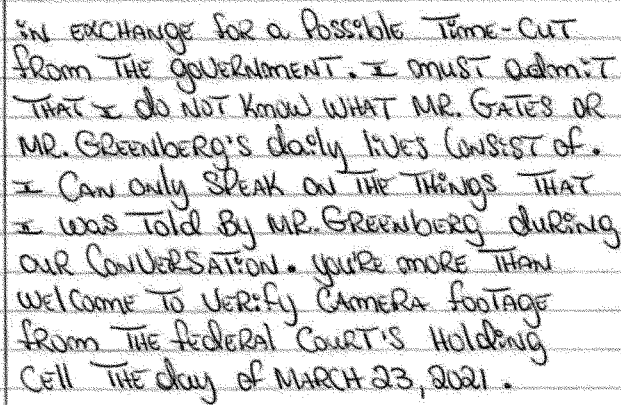 in exchange for a possible Time-Cut
from the government. I must admit
that I do not know what Mr. Gates or
Mr. Greenberg's daily lives consist of.
I can only speak on the things that
I was told by Mr. Greenberg during
our conversation. You're more than
welcome to verify camera footage
from the federal court's holding
cell the day of March 23, 2021.